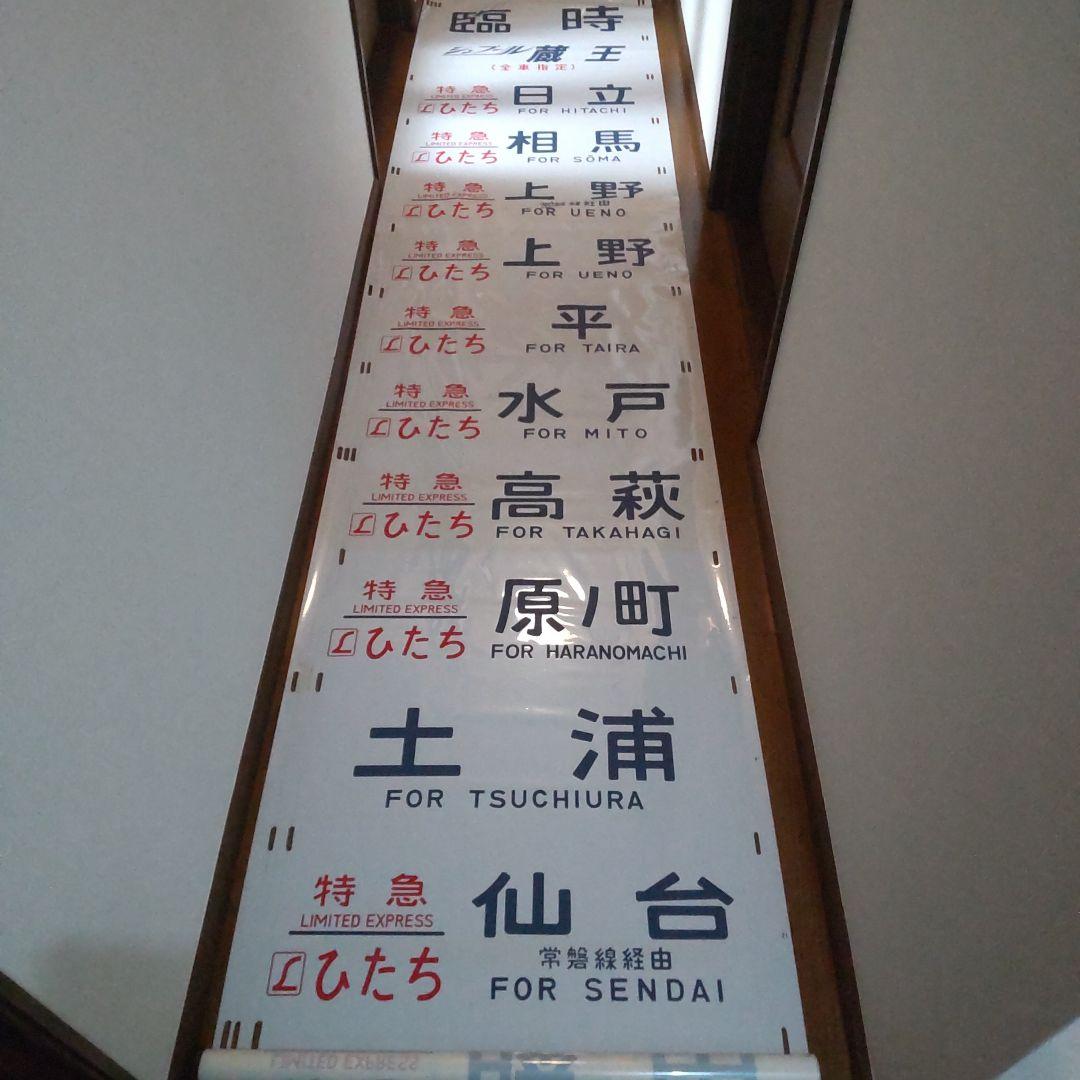 臨時
シュプール蔵王
(全車指定)
特急 日立
LIMITED EXPRESS
Lひたち FOR HITACHI
特急 相馬
LIMITED EXPRESS
Lひたち FOR SŌMA
特急 上野
LIMITED EXPRESS 常磐線経由
Lひたち FOR UENO
特急 上野
LIMITED EXPRESS
Lひたち FOR UENO
特急 平
LIMITED EXPRESS
Lひたち FOR TAIRA
特急 水戸
LIMITED EXPRESS
Lひたち FOR MITO
特急 高萩
LIMITED EXPRESS
Lひたち FOR TAKAHAGI
特急 原ノ町
LIMITED EXPRESS
Lひたち FOR HARANOMACHI
土浦
FOR TSUCHIURA
特急 仙台
LIMITED EXPRESS
常磐線経由
Lひたち FOR SENDAI
LIMITED EXPRESS